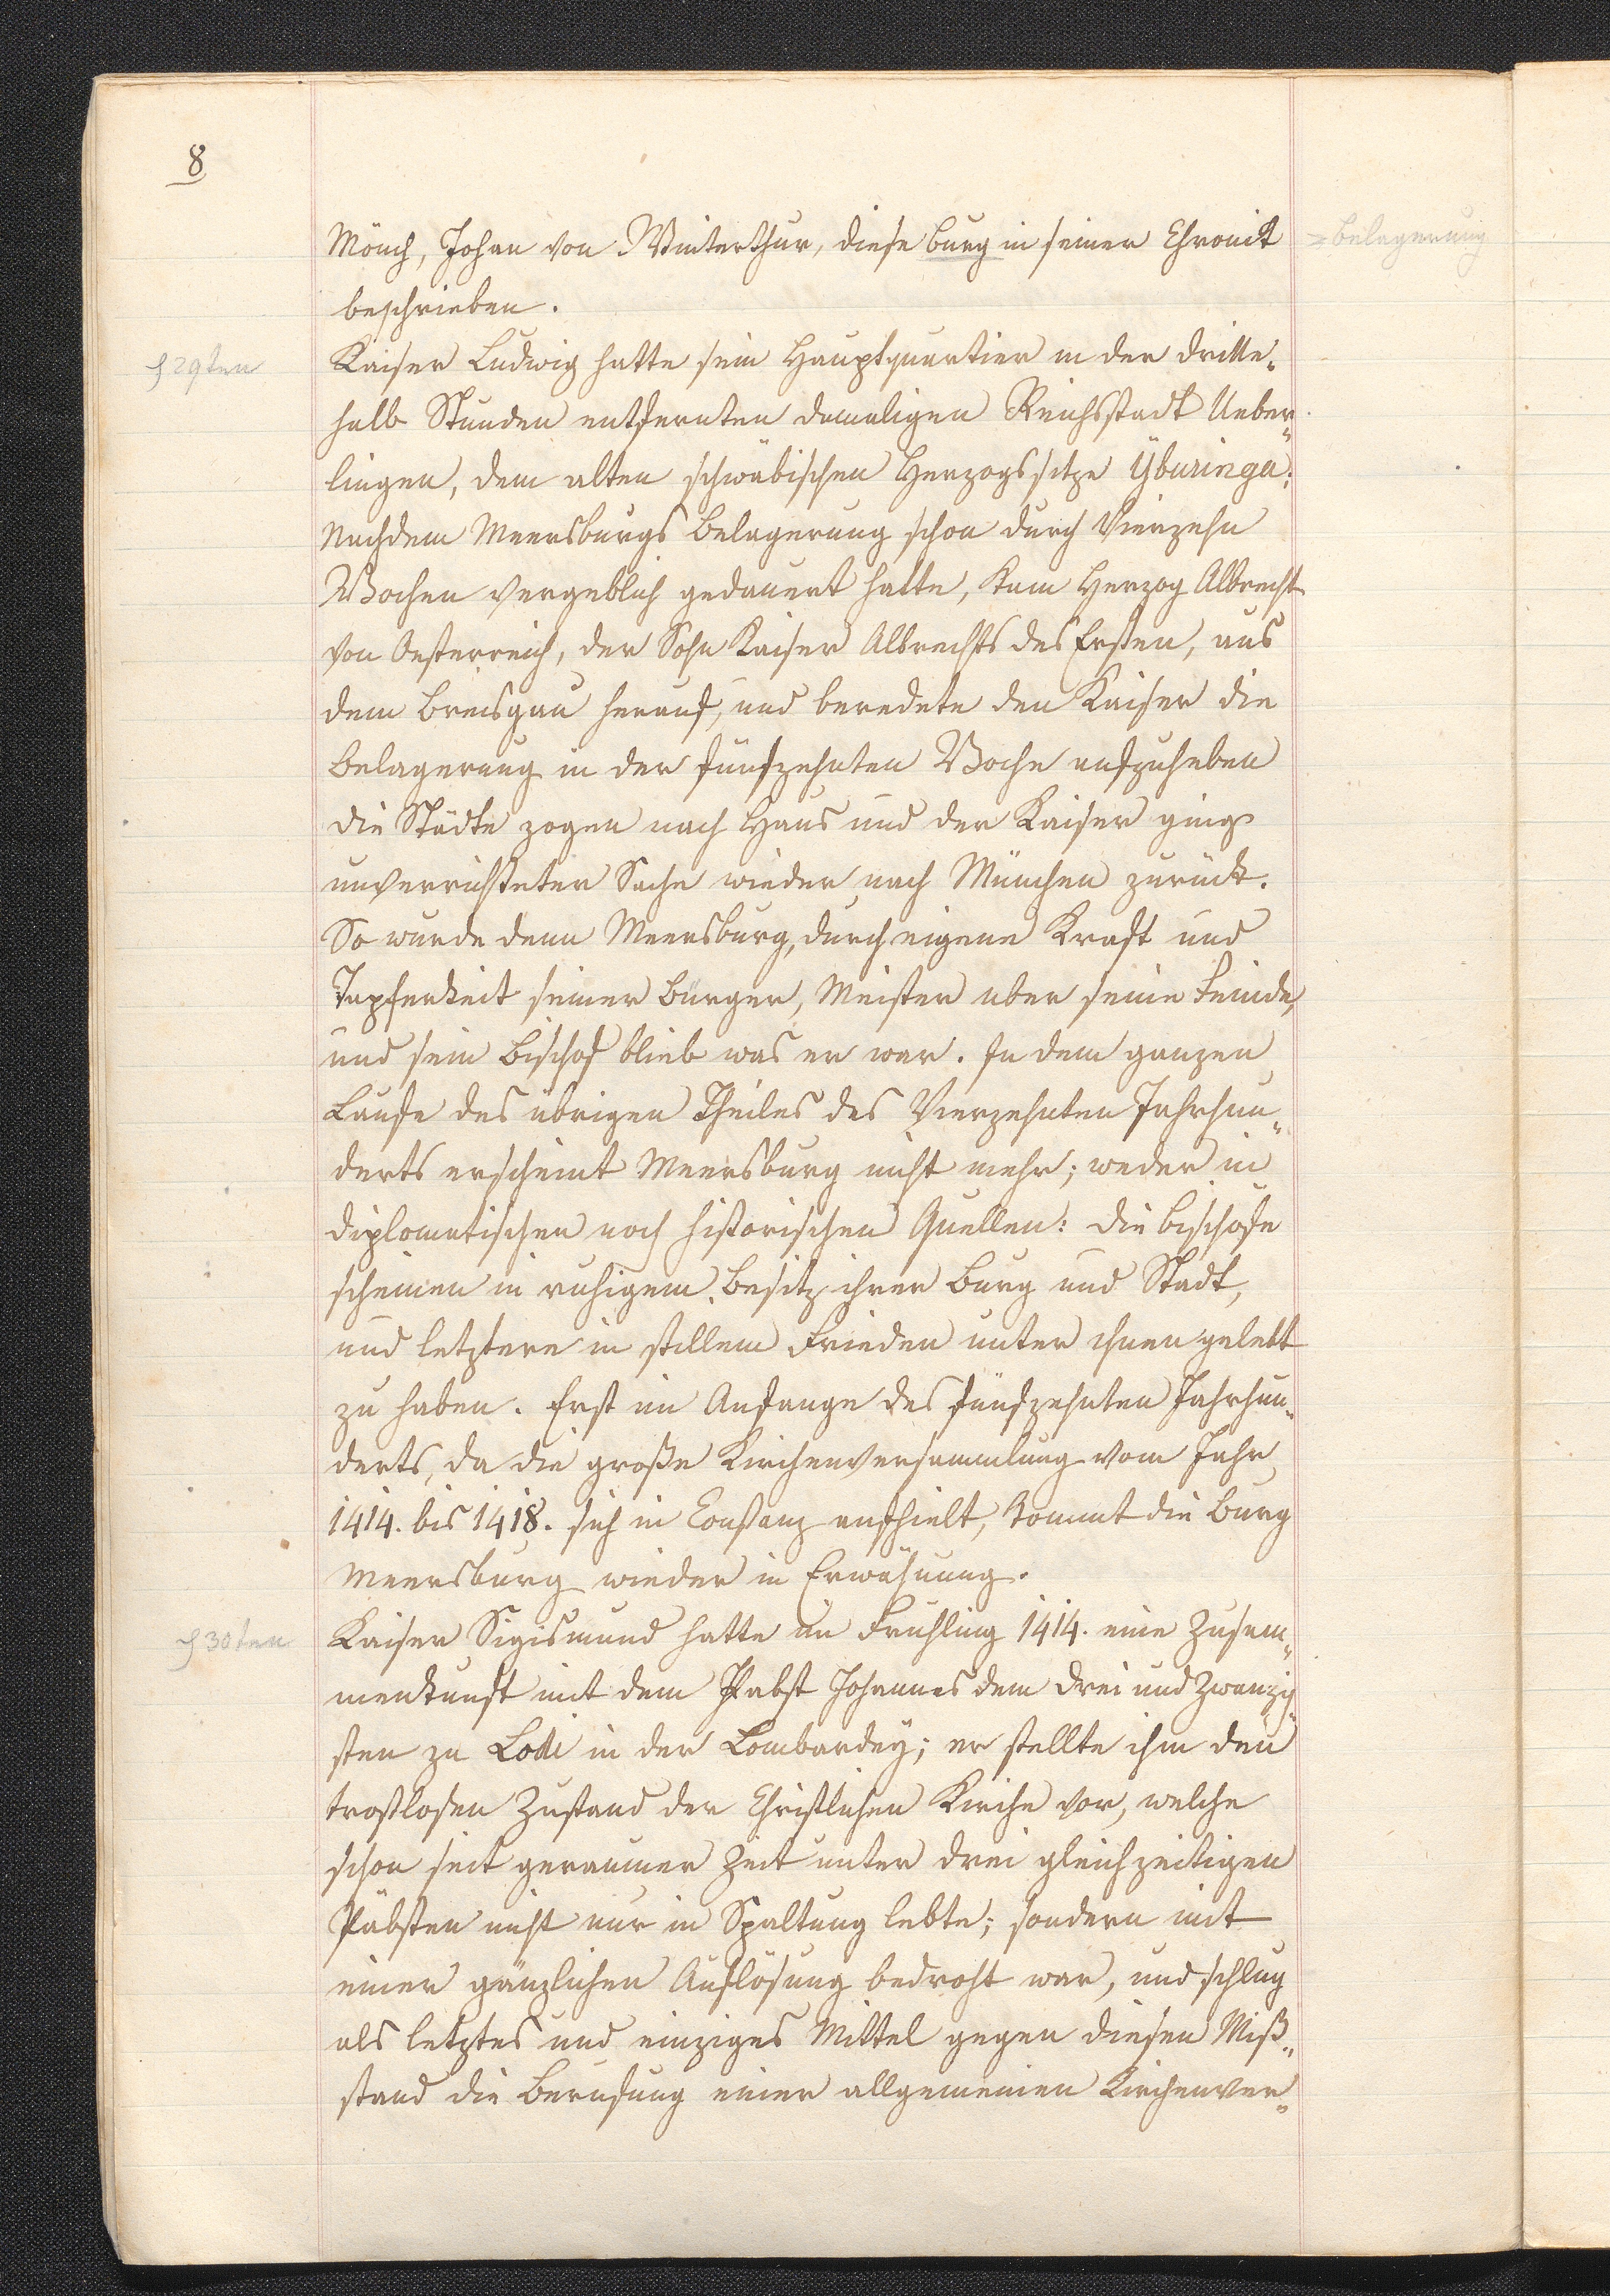 8
Mönch, Johan von Winterthur, diese Burg in seiner Chronik
=Belagerung
beschrieben.
§ 29ten
Kaiser Ludwig hatte sein Hauptquartier in der dritte„
halb Stunden entfernten damaligen Reichsstadt Ueber„
lingen, dem alten schwäbischen Herzogssitze Yburinga;
Nachdem Meersburgs Belagerung schon durch Vierzehn
Wochen vergeblich gedauert hatte, kam Herzog Albrecht
von Oesterreich, der Sohn Kaiser Albrechts des Ersten, aus
dem Breisgau herauf, und beredete den Kaiser die
Belagerung in der fünfzehnten Woche aufzuheben
die Städte zogen nach Haus und der Kaiser ging
unverrichteter Sache wieder nach München zurück.
So wurde denn Meersburg, durch eigene Kraft und
Tapferkeit seiner Bürger, Meister uber seine Feinde,
und sein Bischof blieb was er war. In dem ganzen
Laufe des übrigen Theiles des Vierzehnten Jahrhun„
derts erscheint Meersburg nicht mehr; weder in
diplomatischen noch historischen Quellen: die Bischofe
scheinen in ruhigem Besitz ihrer Burg und Stadt,
und letztere in stillem Frieden unter ihnen gelebt
zu haben. Erst im Anfange des fünfzehnten Jahrhun„
derts, da die große Kirchenversammlung vom Jahr
1414. bis 1418. sich in Constanz aufhielt, kommt die Burg
Meersburg wieder in Erwähnung.
§ 30ten
Kaiser Sigismund hatte im Fruhling 1414. eine Zusam„
menkunft mit dem Pabst Johannes dem drei und Zwanzig„
sten zu Lodi in der Lombardey; er stellte ihm den
trostlosen Zustand der Christlichen Kirche vor, welche
schon seit geraumer Zeit unter drei gleichzeitigen
Päbsten nicht nur in Spaltung lebte; sondern mit
einer gänzlichen Auflösung bedroht war, und schlug
als letztes und einziges Mittel gegen diesen Miß„
stand die Berufung einer allgemeinen Kirchenver„